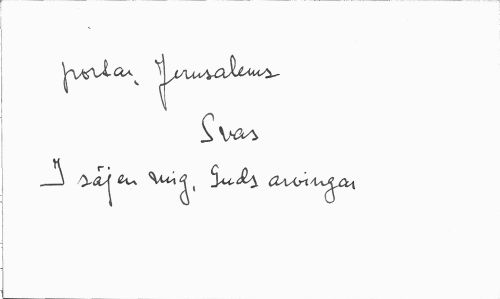 portar, Jerusalems
Svar
I säjen mig, Guds arvingar